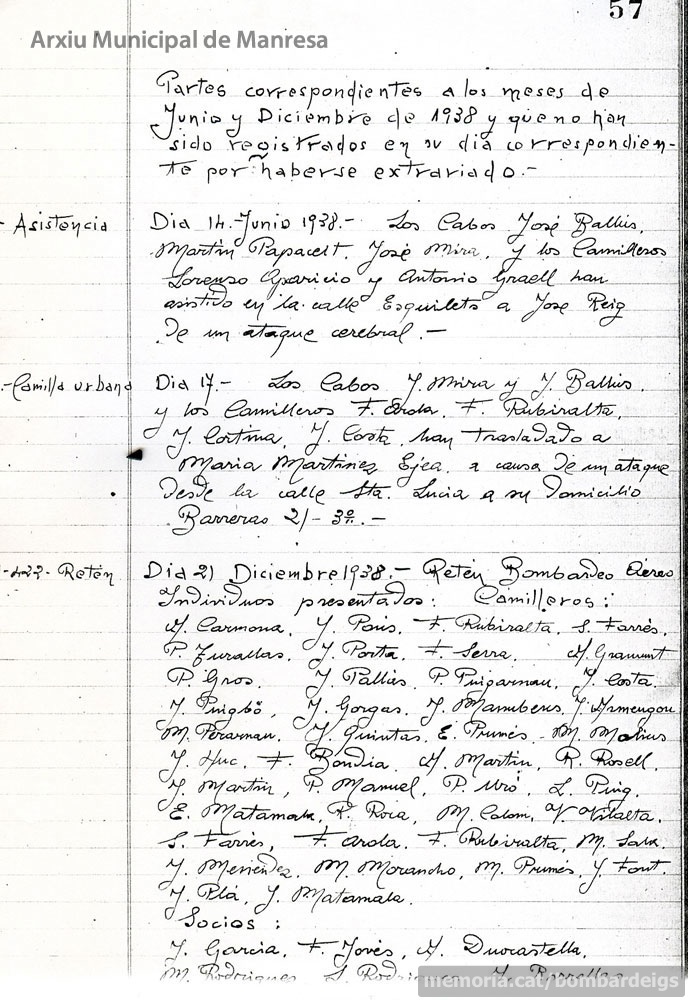 57
Arxiu Municipal de Manresa
Partes correspondientes a los meses de
Junio y Diciembre de 1938 y que no han
sido registrados en su dia correspondien-
te por haberse extraviado.-
- Asistencia
Dia 14.-Junio 1938.- Los Cabos José Ballús,
Martin Papaceit, José Mira, y los Camilleros
Lorenzo Aparicio y Antonio Graell han
asistido en la calle Esquilets a Jose Reig
de un ataque cerebral.-
.-Camilla urbana
Dia 17.- Los Cabos J. Mira y J. Ballús,
y los Camilleros F. Arola, F. Rubiralta,
J. Cortina, J. Costa, han trasladado a
Maria Martinez Ejea, a causa de un ataque
desde la calle Sta. Lucia a su domicilio
Barreras 21-3º.-
-422- Retén
Dia 21 Diciembre 1938.- Retén Bombardeo Aéreo
Individuos presentados: Camilleros:
A. Carmona, J. Pons, F. Rubiralta, S. Farrés,
P. J. Porta, F. Serra,
P. Gros, J. Pallás, P. Puigarnau, J. Costa
J. Puigbó, J. Gorgas, J. J. Armengou
M. J. Quintas, E. Prunés - M.
J. Huc, F. Bondia, A. Martin, R. Rosell,
J. Martin, P. Manuel, P. Miró, L. Puig,
E. Matamala, R. Roca, M. Colom, V. Vilalta,
S. Farrés, F. Arola, F. Rubiralta, M. Sala,
J. Menéndez, M. Morancho, M. Prunés, J. Font,
J. Plá, J. Matamala.
Socios:
J. Garcia, F. Jovés, A. Duocastella,
M. Rodriguez, S. Rodriguez,
memoria.cat/bombardeigs